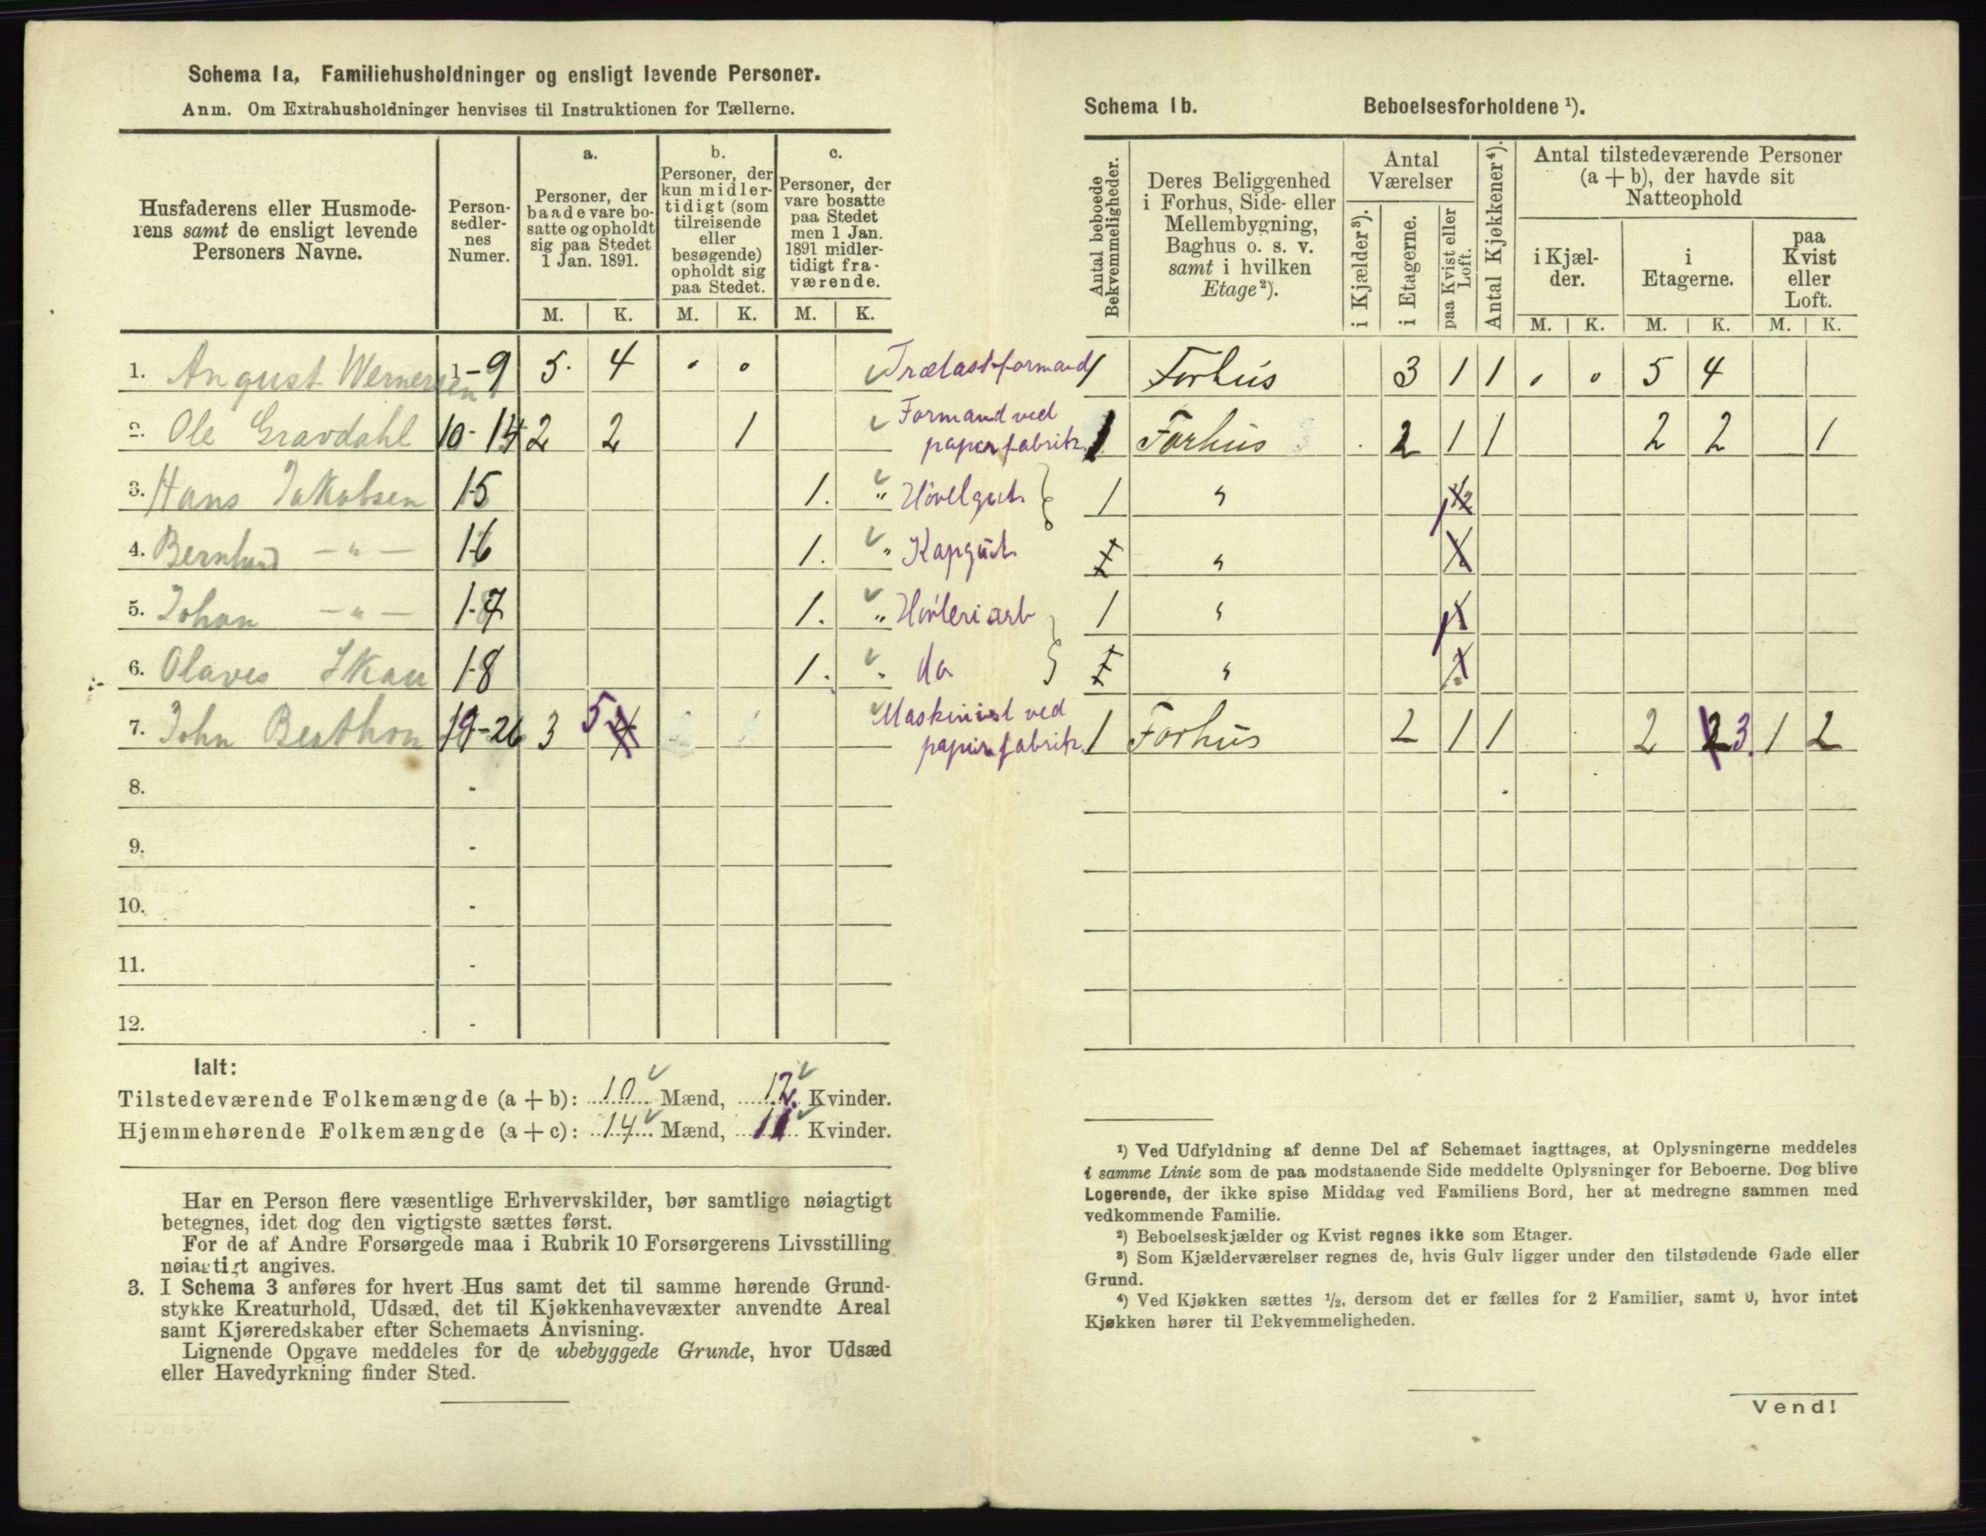 Schema 1a, Familiehusholdninger og ensligt levende Personer.
Anm. Om Extrahusholdninger henvises til Instruktionen for Tællerne.
Husfaderens eller Husmode-
rens samt de ensligt levende
Personers Navne.
Person-
sedler-
nes
Numer.
a.
Personer, der
baade vare bo-
satte og opholdt
sig paa Stedet
1 Jan. 1891.
b.
Personer, der
kun midler-
tidigt (som
tilreisende
eller
besøgende)
opholdt sig
paa Stedet.
c.
Personer, der
vare bosatte
paa Stedet
men 1 Jan.
1891 midler-
tidigt fra-
værende.
M. K. M. K. M. K.
1. August Wernersen 1-9 5. 4 Trælastformand
2. Ole Gravdahl 10-14 2 2 1 Formand ved
papirfabrik
3. Hans Jakobsen 15 1. " Høvelgut
4. Bernhard -"- 16 1. " Kapgut
5. Johan -"- 17 1. " Høvleriarb
6. Olaves Skau 18 1. " do
7. John Berthon 19-26 3 5 Maskinist ved
papirfabrik
8. -
9. -
10. -
11. -
12. -
Ialt:
Tilstedeværende Folkemængde (a + b): 10 Mænd, 12 Kvinder.
Hjemmehørende Folkemængde (a + c): 14 Mænd, 11 Kvinder.
Har en Person flere væsentlige Erhvervskilder, bør samtlige nøiagtigt
betegnes, idet dog den vigtigste sættes først.
For de af Andre Forsørgede maa i Rubrik 10 Forsørgerens Livsstilling
nøiagtigt angives.
3. I Schema 3 anføres for hvert Hus samt det til samme hørende Grund-
stykke Kreaturhold, Udsæd, det til Kjøkkenhavevæxter anvendte Areal
samt Kjøreredskaber efter Schemaets Anvisning.
Lignende Opgave meddeles for de ubebyggede Grunde, hvor Udsæd
eller Havedyrkning finder Sted.
Schema 1b. Beboelsesforholdene ¹).
Antal beboede
Bekvemmeligheder.
Deres Beliggenhed
i Forhus, Side- eller
Mellembygning,
Baghus o. s. v.
samt i hvilken
Etage²).
Antal
Værelser
i Kjælder³).
i Etagerne.
paa Kvist eller
Loft.
Antal Kjøkkener⁴).
Antal tilstedeværende Personer
(a + b), der havde sit
Natteophold
i Kjæl-
der.
i
Etagerne.
paa
Kvist
eller
Loft.
M. K. M. K. M. K.
1 Forhus 3 1 1 5 4
1 Forhus 2 1 1 2 2 1
1 " 1
"
1 " 1
"
1 Forhus 2 1 1 2 3. 1 2
¹) Ved Udfyldning af denne Del af Schemaet iagttages, at Oplysningerne meddeles
i samme Linie som de paa modstaaende Side meddelte Oplysninger for Beboerne. Dog blive
Logerende, der ikke spise Middag ved Familiens Bord, her at medregne sammen med
vedkommende Familie.
²) Beboelseskjælder og Kvist regnes ikke som Etager.
³) Som Kjælderværelser regnes de, hvis Gulv ligger under den tilstødende Gade eller
Grund.
⁴) Ved Kjøkken sættes ½, dersom det er fælles for 2 Familier, samt 0, hvor intet
Kjøkken hører til Bekvemmeligheden.
Vend!